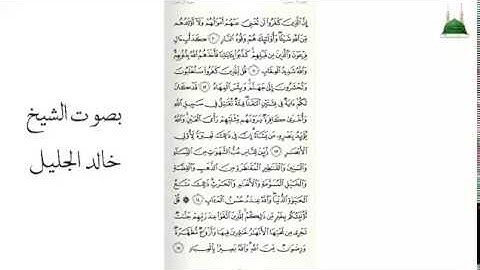 إِنَّ الَّذِينَ كَفَرُوا لَن تُغْنِيَ عَنْهُمْ أَمْوَالُهُمْ وَلَا أَوْلَادُهُم
مِّنَ اللَّهِ شَيْئًا وَأُولَئِكَ هُمْ وَقُودُ النَّارِ ١٠ كَدَأْبِ آلِ
فِرْعَوْنَ وَالَّذِينَ مِن قَبْلِهِمْ كَذَّبُوا بِآيَاتِنَا فَأَخَذَهُمُ اللَّهُ بِذُنُوبِهِمْ
وَاللَّهُ شَدِيدُ الْعِقَابِ ١١ قُل لِّلَّذِينَ كَفَرُوا سَتُغْلَبُونَ
وَتُحْشَرُونَ إِلَى جَهَنَّمَ وَبِئْسَ الْمِهَادُ ١٢ قَدْ كَانَ
لَكُمْ آيَةٌ فِي فِئَتَيْنِ الْتَقَتَا فِئَةٌ تُقَاتِلُ فِي سَبِيلِ اللَّهِ
وَأُخْرَى كَافِرَةٌ يَرَوْنَهُم مِّثْلَيْهِمْ رَأْيَ الْعَيْنِ وَاللَّهُ
يُؤَيِّدُ بِنَصْرِهِ مَن يَشَاءُ إِنَّ فِي ذَلِكَ لَعِبْرَةً لِّأُولِي
الْأَبْصَارِ ١٣ زُيِّنَ لِلنَّاسِ حُبُّ الشَّهَوَاتِ مِنَ النِّسَاءِ
وَالْبَنِينَ وَالْقَنَاطِيرِ الْمُقَنطَرَةِ مِنَ الذَّهَبِ وَالْفِضَّةِ
وَالْخَيْلِ الْمُسَوَّمَةِ وَالْأَنْعَامِ وَالْحَرْثِ ذَلِكَ مَتَاعُ
الْحَيَاةِ الدُّنْيَا وَاللَّهُ عِندَهُ حُسْنُ الْمَآبِ ١٤ قُلْ
أَؤُنَبِّئُكُم بِخَيْرٍ مِّن ذَلِكُمْ لِلَّذِينَ اتَّقَوْا عِندَ رَبِّهِمْ جَنَّاتٌ
تَجْرِي مِن تَحْتِهَا الْأَنْهَارُ خَالِدِينَ فِيهَا وَأَزْوَاجٌ مُّطَهَّرَةٌ
وَرِضْوَانٌ مِّنَ اللَّهِ وَاللَّهُ بَصِيرٌ بِالْعِبَادِ ١٥
بصوت الشيخ
خالد الجليل